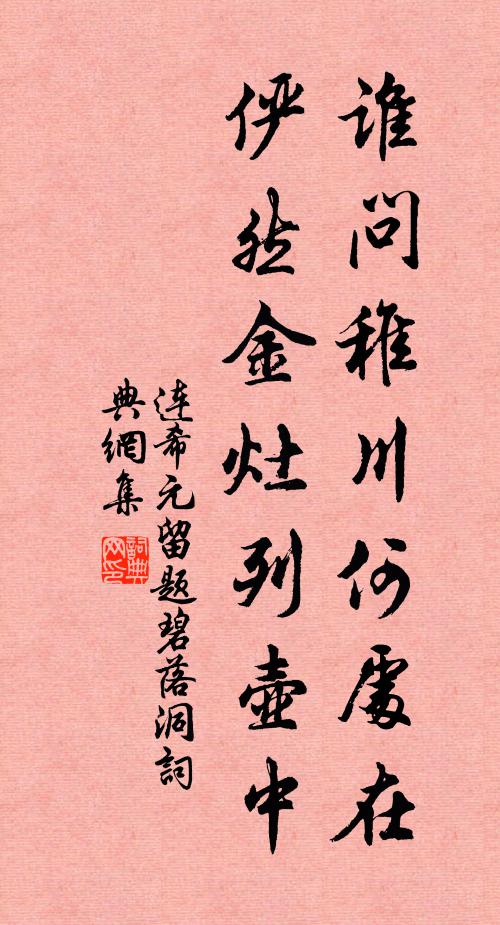 谁问稚川何處在
俨然金灶列壺中
连希元留题碧落洞詞
典網集
詞典网印